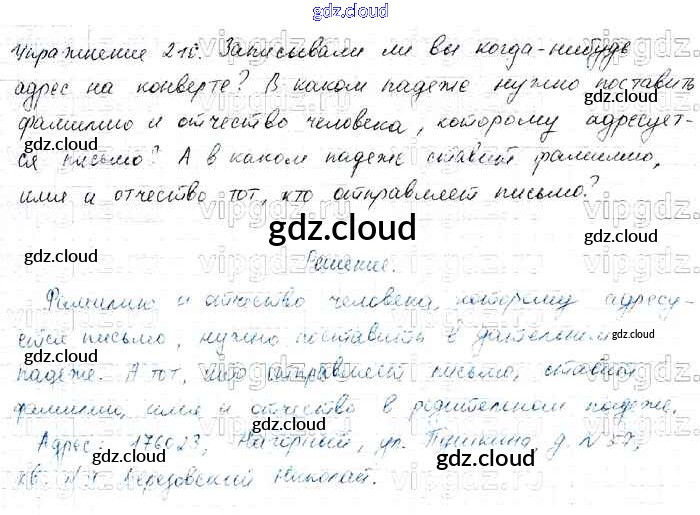 gdz.cloud
Упражнение 210. Записывали ли вы когда-нибудь
адрес на конверте? В каком падеже нужно поставить
фамилию и отчество человека, которому адресует-
ся письмо? А в каком падеже ставит фамилию,
имя и отчество тот, кто отправляет письмо?
gdz.cloud
Решение.
Фамилию и отчество человека, которому адресу-
ется письмо, нужно поставить в дательном
падеже. А тот, кто отправляет письмо, ставит
фамилии, имя и отчество в родительном падеже.
Адрес: 176023, Нагорный, ул. Пушкина д. N 37,
кв. Березовский Николай.